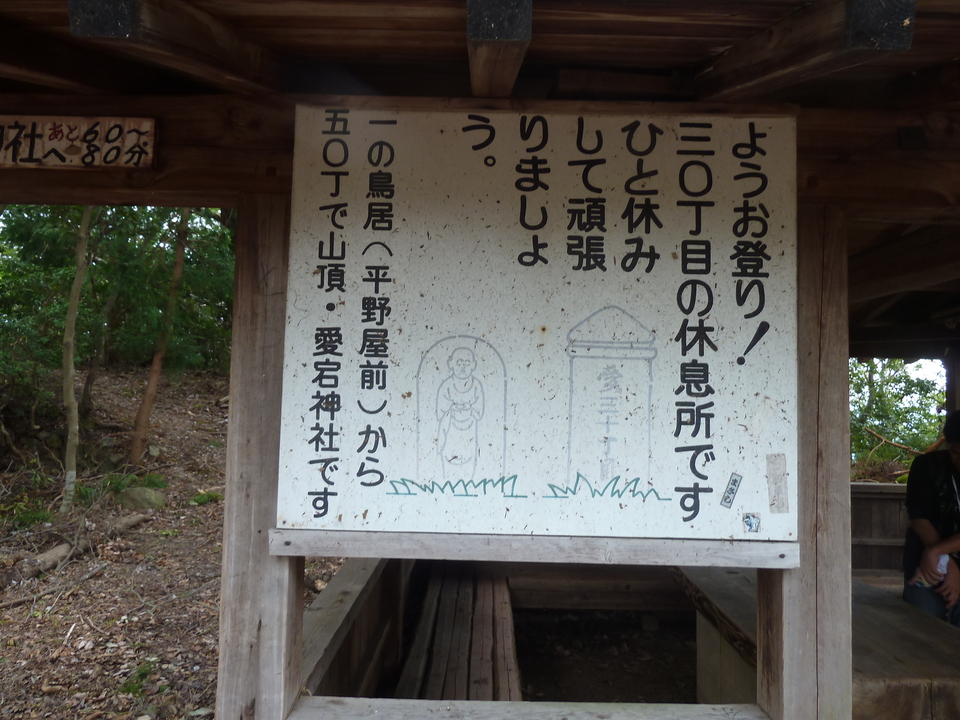 ようお登り！
三〇丁目の休息所です
ひと休み
して頑張
りましょ
う。
一の鳥居(平野屋前)から
五〇丁で山頂・愛宕神社です
社へあと60～80分